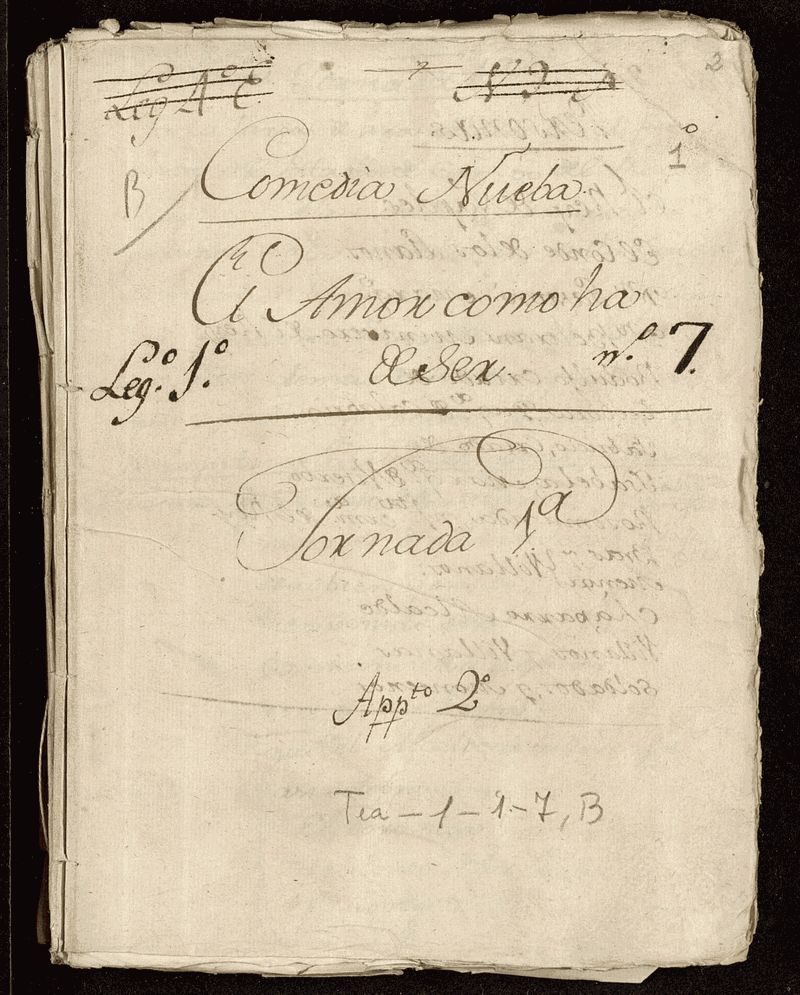 Leg.º 4.º C.
2
1º
B
Comedia Nueba.
El Amor como ha
de Ser.
Leg.º 1.º
n.º 7.
Jornada 1ª
Appto 2º
Tea - 1 - 1 - 7, B